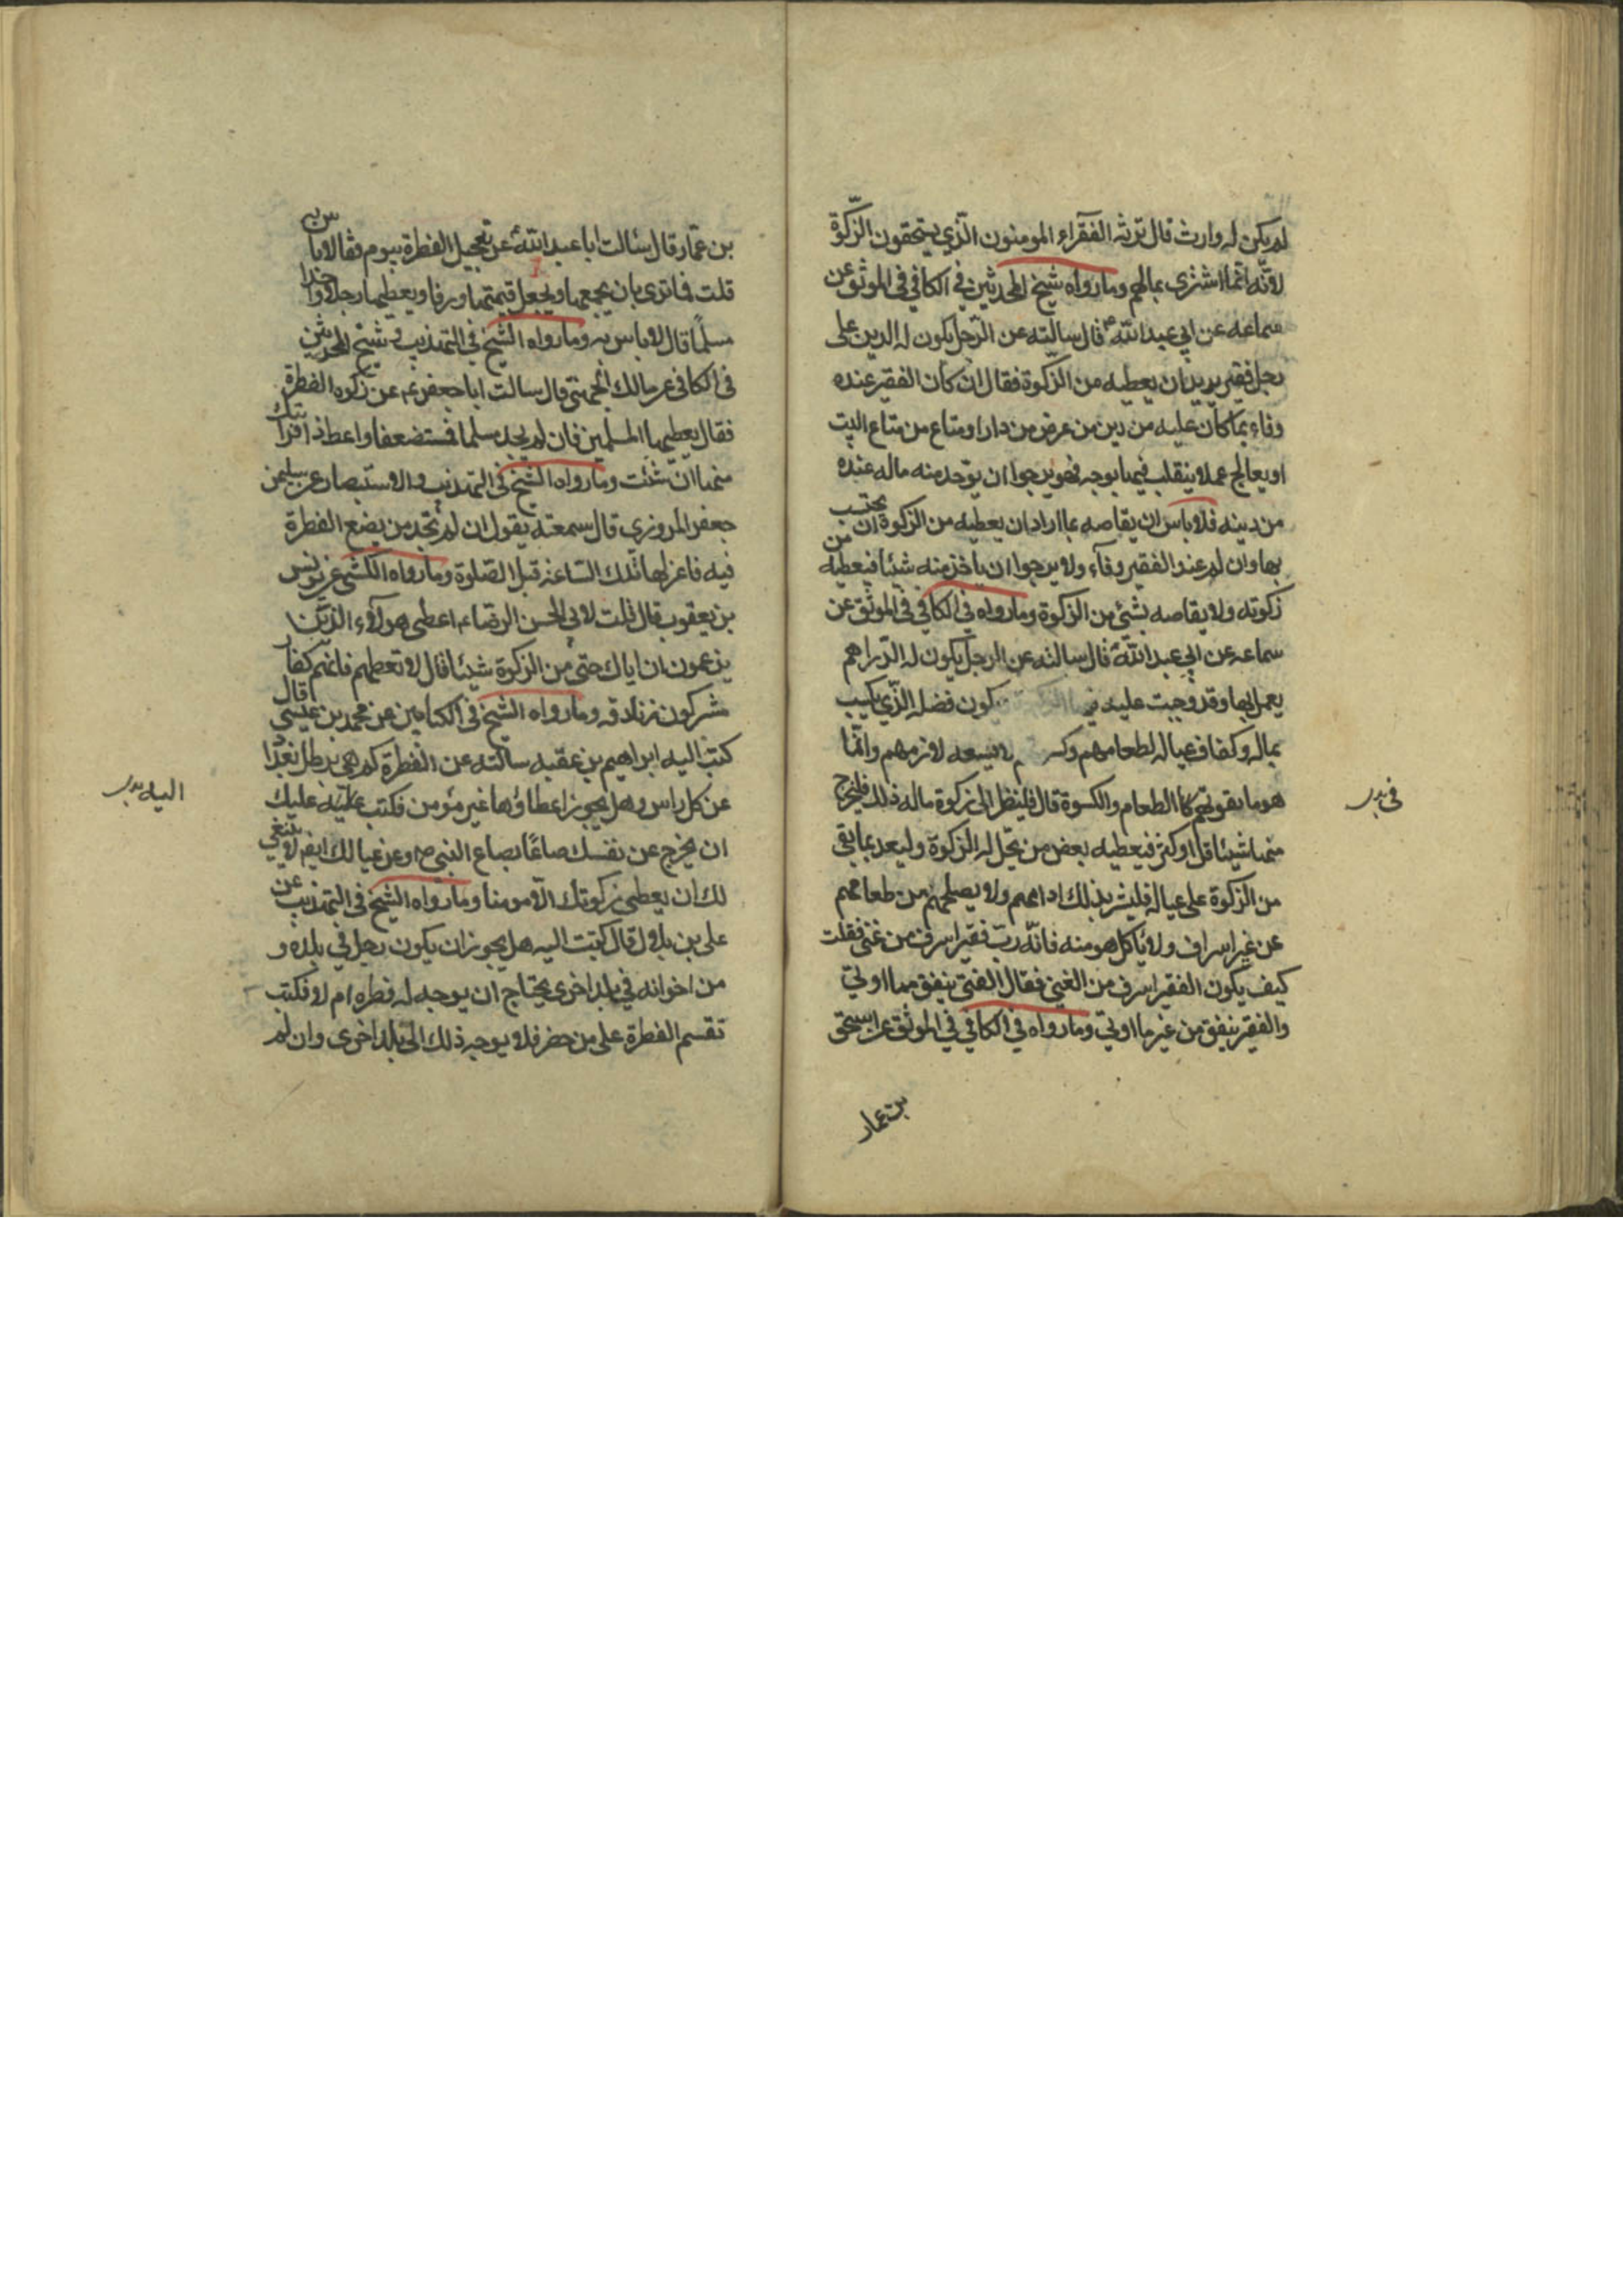 لم يكن له وارث قال ترثه الفقراء المومنون الذي يستحقون الزكوة
لانّه انّما اشتري بمالهم وما رواه شيخ المحدثين في الكافي في الموثق عن
سماعة عن ابي عبد الله ع قال سالته عن الرّجل يكون له الدين على
رجل فقير يريد ان يعطيه من الزّكوة فقال ان كان الفقير عنده
وفاء بما كان عليه من دين من عرض من دار او متاع من متاع البيت
او يعالج عملا ينقلب فيها بوجه فهو يرجوا ان يوخذ منه ماله عنده
من دينه فلا باس ان يقاصه بما اراد ان يعطيه من الزكوة ان يحتسب
بها وان لم عند الفقير وفآء ولا يرجوا ان ياخذ منه شيئا فيعطيه من
زكوته ولا يقاصه بشئ من الزكوة وما رواه في الكافي في الموثق عن
سماعه عن ابي عبد الله ع قال سالته عن الرجل يكون له الدّراهم
يعمل بها وقد وجبت عليه فيها الزكوة يكون فضله الذّي يكسب
بماله وكفاف عياله لطعامهم وكسـ ـم لا يسعه لادمهم وانّما
هو ما يقوتهم كا الطعام والكسوة قال فلينظر الى زكوة ماله ذلك فليخرج
منها شيئا قل او كثر فيعطيه بعض من تحلّ له الزكوة وليعد بما بقى
من الزكوة على عياله فليشتر بذلك ادامهم ولا يصلحهم من طعامهم
عن غير اسراف ولا ياكل هو منه فانّه ربّ فقير اسرف من غنى فقلت
كيف يكون الفقير اسرف من الغنى فقال الغنى ينفق مما اوتي
والفقير ينفق من غير ما اوتي وما رواه في الكافي في الموثق عن اسحق
بن عمار
في بدر
بن عمّار قال سئالت ابا عبد الله ع عن تعجيل الفطرة بيوم فقال لا باس به
قلت فما ترى بان يجمعها ويجعل قيمتها ورقا ويعطيها رجلا واحدا
مسلمًا قال لا باس به وما رواه الشيخ في التهذيب وشيخ المحدثين
في الكافي عن مالك الجهنى قال سالت ابا جعفر ع عن زكوه الفطرة
فقال يعطيها المسلمين فان لم يجد مسلما فمستضعفا واعط ذا قرابتك
منها ان شئت وما رواه الشيخ في التهذيب والاستبصار عن سليمن
جعفر المروزي قال سمعته يقول ان لم تجد من يضع الفطرة
فيه فاعزلها تلك السّاعة قبل الصّلوة وما رواه الكشى عن يونس
بن يعقوب قال قلت لابي الحسن الرضا ع اعطى هولآء الذين
يزعمون ان اباك حتى من الزكوة شيئا قال لا تعطهم فانهم كفار
مشركون زنادقه وما رواه الشيخ في الكتابين عن محمد بن عيسى قال
كتب اليه ابراهيم بن عقبه سالته عن الفطرة كم هي برطل بغداد
عن كل راس وهل يجوز اعطاؤها غير مؤمن فكتب عليه عليك
ان يخرج عن نفسك صاعًا بصاع النبي ص وعن عيالك ايضا لا ينبغي
لك ان يعطى زكوتك الّا مومنا وما رواه الشيخ في التهذيب عن
على بن بلال قال كتبت اليه هل يجوز ان يكون رجل في بلده و
من اخوانه في بلد اخرى يحتاج ان يوجه له فطره ام لا فكتب
تقسم الفطرة على من حضر فلا يوجه ذلك الى بلد اخرى وان لم
اليه بدر